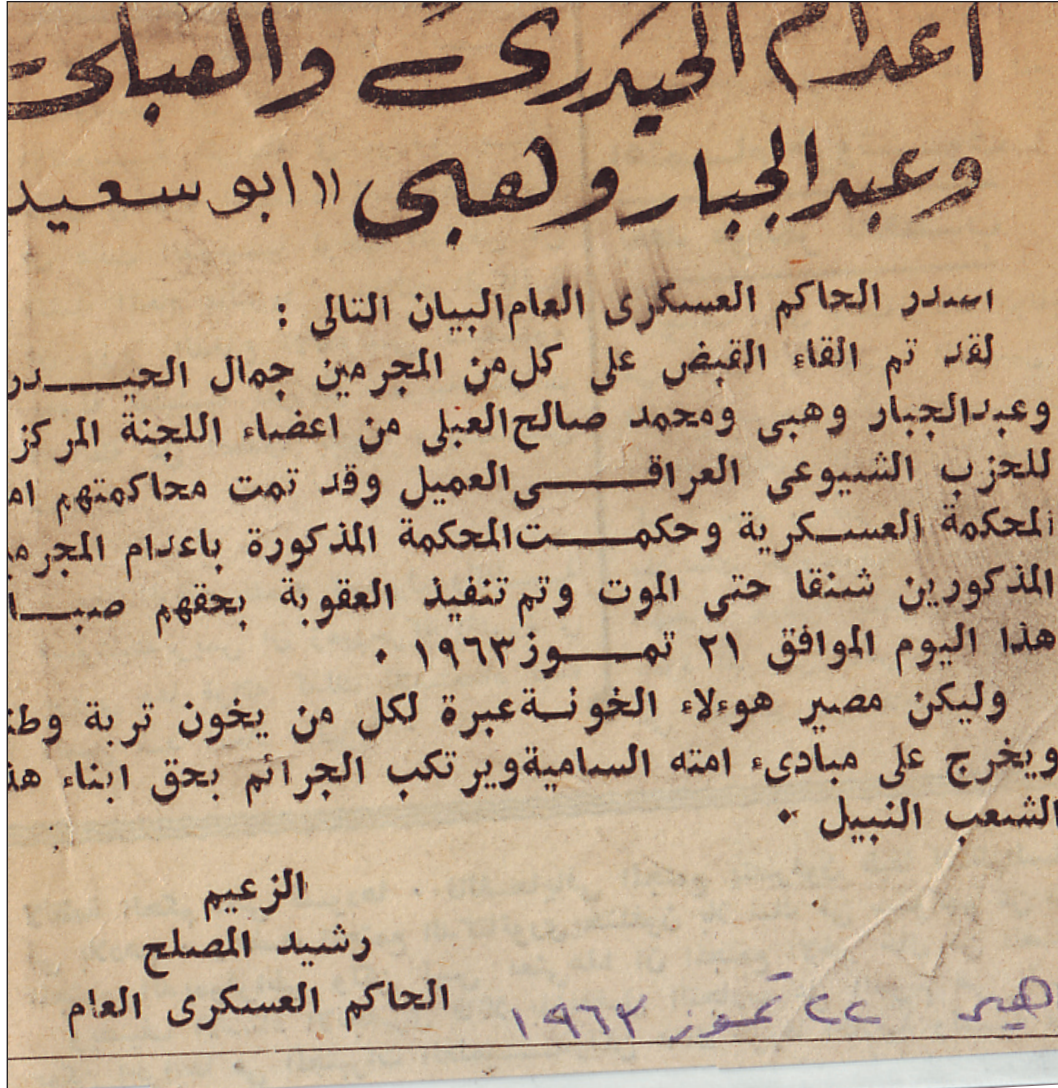 اعدام الحيدرى والعبلى
وعبدالجبار وهبى «ابو سعيد
اصدر الحاكم العسكرى العام البيان التالى :
لقد تم القاء القبض على كل من المجرمين جمال الحيـــدر
وعبدالجبار وهبى ومحمد صالح العبلى من اعضاء اللجنة المركز
للحزب الشيوعى العراقـــى العميل وقد تمت محاكمتهم ام
المحكمة العسـكرية وحكمـــت المحكمة المذكورة باعدام المجرم
المذكورين شنقا حتى الموت وتم تنفيذ العقوبة بحقهم صبـــا
هذا اليوم الموافق ٢١ تمـــوز ١٩٦٣ ٠
وليكن مصير هوءلاء الخونـة عبرة لكل من يخون تربة وطن
ويخرج على مبادىء امته السامية ويرتكب الجرائم بحق ابناء هذ
الشعب النبيل ٠
الزعيم
رشيد المصلح
الحاكم العسكرى العام
٢٢ تموز ١٩٦٣